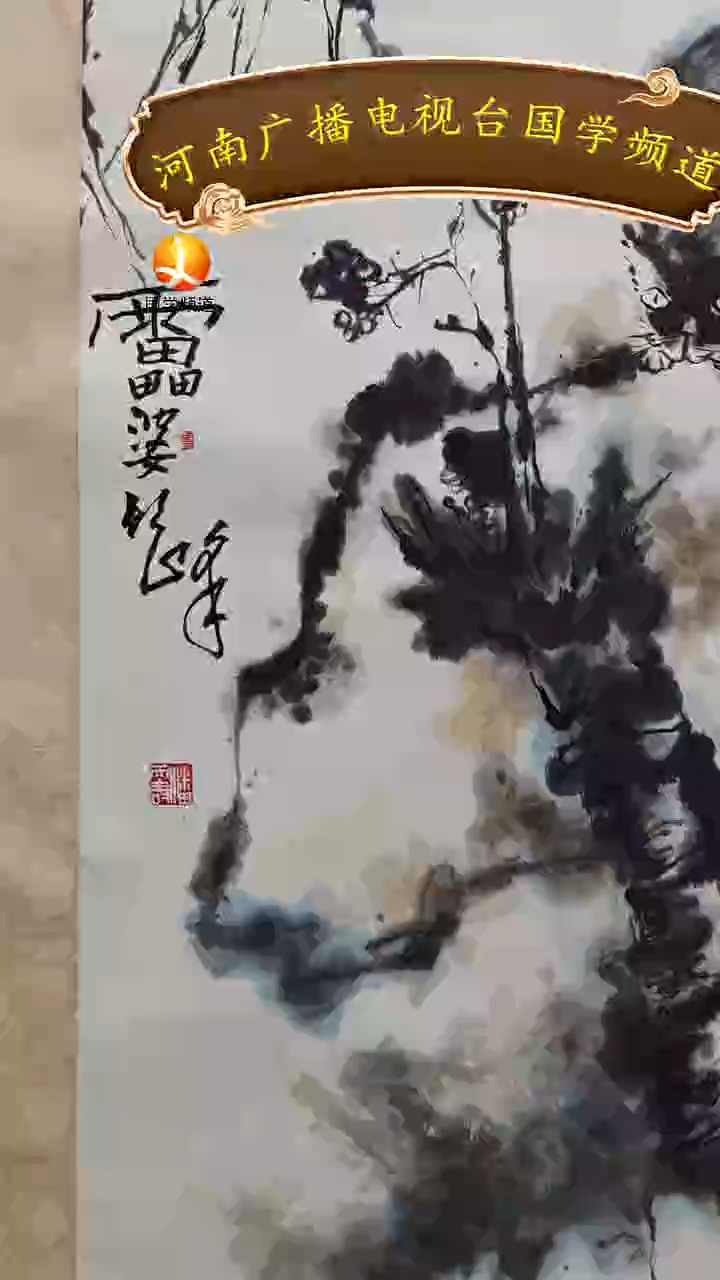 河南广播电视台国学频道
国学频道
靁婆頭峰